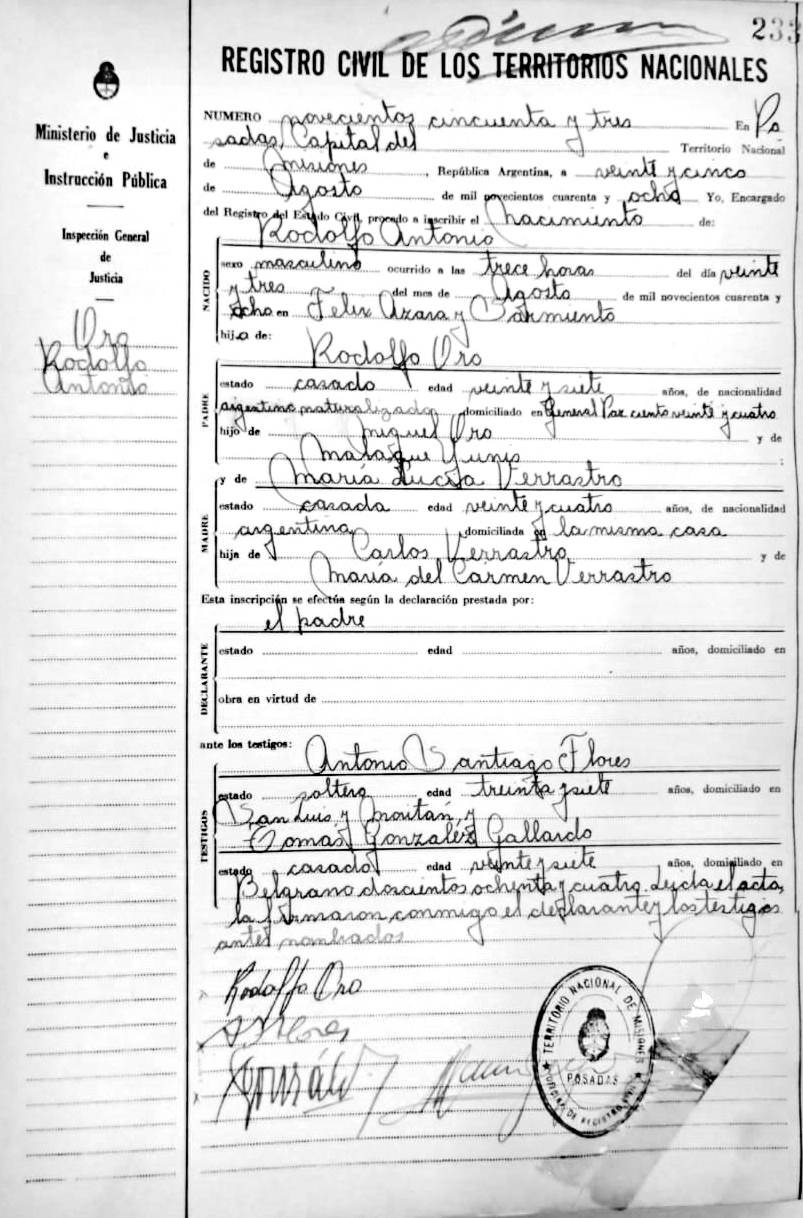 233
REGISTRO CIVIL DE LOS TERRITORIOS NACIONALES
Ministerio de Justicia
e
Instrucción Pública
Inspección General
de
Justicia
Oro
Rodolfo
Antonio
NUMERO novecientos cincuenta y tres En Po
sadas, Capital del Territorio Nacional
de Misiones, República Argentina, a veinte y cinco
de Agosto de mil novecientos cuarenta y ocho Yo, Encargado
del Registro del Estado Civil, procedo a inscribir el Nacimiento de:
NACIDO
Rodolfo Antonio
sexo masculino ocurrido a las trece horas del día veinte
y tres del mes de Agosto de mil novecientos cuarenta y
ocho en Felix Azara y Sarmiento
hijo de:
PADRE
Rodolfo Oro
estado casado edad veinte y siete años, de nacionalidad
argentino naturalizado domiciliado en General Paz ciento veinte y cuatro
hijo de Miguel Oro y de
Malaque Yunis;
MADRE
y de María Lucía Verrastro
estado casada edad veinte y cuatro años, de nacionalidad
argentina domiciliada en la misma casa
hija de Carlos Verrastro y de
María del Carmen Verrastro
Esta inscripción se efectúa según la declaración prestada por:
DECLARANTE
el padre
estado edad años, domiciliado en
obra en virtud de
ante los testigos:
TESTIGOS
Antonio Santiago Flores
estado soltero edad treinta y siete años, domiciliado en
San Luis y Moritán, y
Tomás González Gallardo
estado casado edad veinte y siete años, domiciliado en
Belgrano doscientos ochenta y cuatro. Leida el acta,
la firmaron conmigo el declarante y los testigos
antes nombrados
Rodolfo Oro
TERRITORIO NACIONAL DE MISIONES
POSADAS
OFICINA DE REGISTRO CIVIL